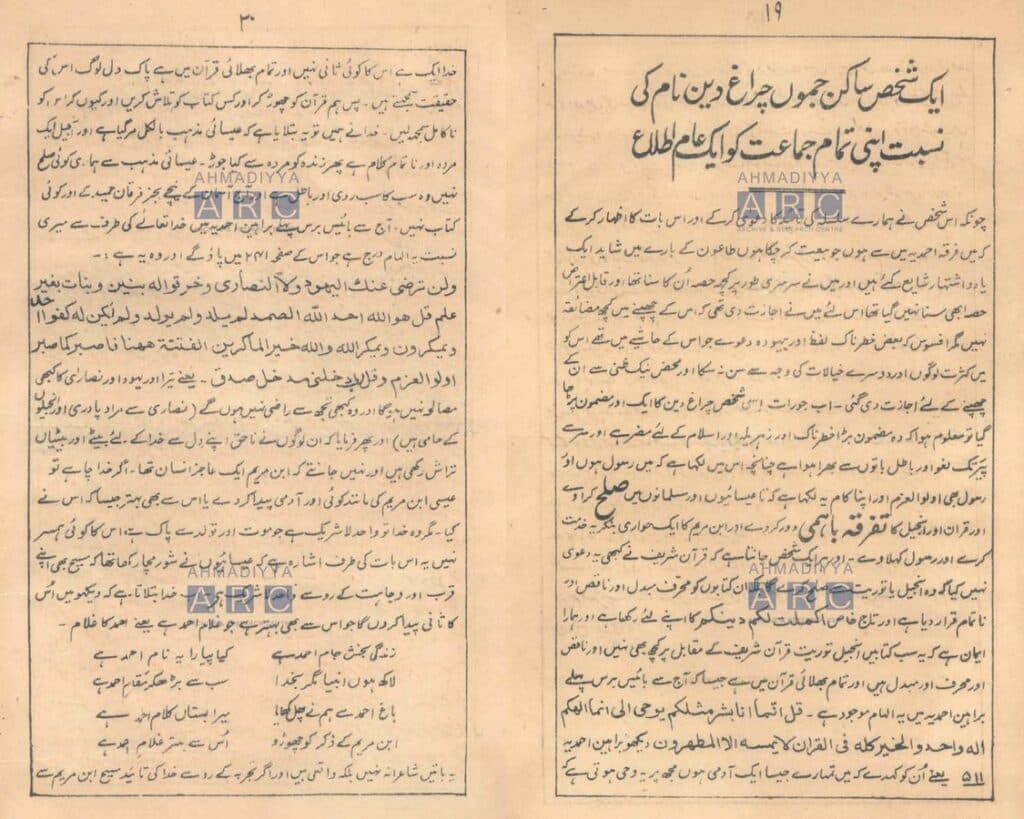 ۱۹
ایک شخص ساکن جموں چراغ دین نام کی
نسبت اپنی تمام جماعت کو ایک عام اطلاع
AHMADIYYA
ARC
ARCHIVE & RESEARCH CENTRE
چونکہ اس شخص نے ہمارے سلسلہ کی تائید کا دعویٰ کرکے اور اس بات کا اظہار کرکے
کہ میں فرقہ احمدیہ میں سے ہوں جو بیعت کر چکا ہوں طاعون کے بارے میں شاید ایک
یا دو اشتہار شایع کئے ہیں اور میں نے سرسری طور پر کچھ حصہ اُن کا سنا تھا اور قابل اعتراض
حصہ ابھی سنا نہیں گیا تھا اس لئے میں نے اجازت دی تھی کہ اس کے چھپنے میں کچھ مضائقہ
نہیں مگر افسوس کہ بعض خطرناک لفظ اور بیہودہ دعوے جو اس کے حاشیے میں تھے اس کو
میں کثرت لوگوں اور دوسرے خیالات کی وجہ سے سن نہ سکا اور محض نیک ظنی سے ان کے
چھپنے کے لئے اجازت دی گئی۔ اب جو رات اسی شخص چراغ دین کا ایک اور مضمون پڑھا
گیا تو معلوم ہوا کہ وہ مضمون بڑا خطرناک اور زہریلا اور اسلام کے لئے مضر ہے اور سر سے
پیر تک لغو اور باطل باتوں سے بھرا ہوا ہے چنانچہ اس میں لکھا ہے کہ میں رسول ہوں اور
رسول بھی اولوالعزم اور اپنا کام یہ لکھا ہے کہ تا عیسائیوں اور مسلمانوں میں صلح کراوے
اور قرآن اور انجیل کا تفرقہ باہمی دور کر دے اور ابن مریم کا ایک حواری بنکر یہ خدمت
کرے اور رسول کہلاوے۔ اور ہر ایک شخص جانتا ہے کہ قرآن شریف نے کبھی یہ دعویٰ
AHMADIYYA
ARC
نہیں کیا کہ وہ انجیل یا توریت سے صلح کرے گا بلکہ ان کتابوں کو محرف مبدل اور ناقص اور
ناتمام قرار دیا ہے اور تاج خاص اکملت لکم دینکم کا اپنے لئے رکھا ہے اور ہمارا
ایمان ہے کہ یہ سب کتابیں انجیل توریت قرآن شریف کے مقابل پر کچھ بھی نہیں اور ناقص
اور محرف اور مبدل ہیں اور تمام بھلائی قرآن میں ہے جیسا کہ آج سے بائیس برس پہلے
براہین احمدیہ میں یہ الہام موجود ہے۔ قل انما انا بشر مثلکم یوحی الی انما الھکم
الہ واحد والخیر کلہ فی القران لا یمسہ الا المطھرون دیکھو براہین احمدیہ
۵۱۱ یعنے اُن کو کہدے کہ میں تمہارے جیسا ایک آدمی ہوں مجھ پر یہ وحی ہوتی ہے کہ
۲۰
خدا ایک ہے اس کا کوئی ثانی نہیں اور تمام بھلائی قرآن میں ہے پاک دل لوگ اس کی
حقیقت سمجھتے ہیں۔ پس ہم قرآن کو چھوڑ کر اور کس کتاب کو تلاش کریں اور کیوں کر اس کو
ناکامل سمجھ لیں۔ خدا نے ہمیں تو یہ بتلایا ہے کہ عیسائی مذہب بالکل مر گیا ہے اور انجیل ایک
مردہ اور ناتمام کلام ہے پھر زندہ کو مردہ سے کیا جوڑ۔ عیسائی مذہب سے ہماری کوئی صلح
AHMADIYYA
ARC
نہیں وہ سب کا سب ردی اور باطل ہے اور آج آسمان کے نیچے بجز فرقان حمید کے اور کوئی
کتاب نہیں۔ آج سے بائیس برس پہلے براہین احمدیہ میں خدا تعالےٰ کی طرف سے میری
نسبت یہ الہام درج ہے جو اس کے صفحہ ۲۴۱ میں پاؤ گے اور وہ یہ ہے:۔
ولن ترضی عنک الیھود ولا النصاری وخرقوا لہ بنین وبنات بغیر
علم قل ھو اللہ احد اللہ الصمد لم یلد ولم یولد ولم یکن لہ کفوا احد
ویمکرون ویمکر اللہ واللہ خیر الماکرین الفتنة ھھنا فاصبر کما صبر
اولوالعزم وقل رب ادخلنی مدخل صدق۔ یعنے تیرا اور یہود اور نصاریٰ کا کبھی
مصالحہ نہیں ہوگا اور وہ کبھی تجھ سے راضی نہیں ہوں گے (نصاریٰ سے مراد پادری اور انجیلوں
کے حامی ہیں) اور پھر فرمایا کہ ان لوگوں نے ناحق اپنے دل سے خدا کے لئے بیٹے اور بیٹیاں
تراش رکھی ہیں اور نہیں جانتے کہ ابن مریم ایک عاجز انسان تھا۔ اگر خدا چاہے تو
عیسیٰ ابن مریم کی مانند کوئی اور آدمی پیدا کر دے یا اس سے بھی بہتر جیسا کہ اس نے
کیا۔ مگر وہ خدا تو واحد لاشریک ہے جو موت اور تولد سے پاک ہے اس کا کوئی ہمسر
نہیں یہ اس بات کی طرف اشارہ ہے کہ عیسائیوں نے شور مچا رکھا تھا کہ مسیح بھی اپنے
AHMADIYYA
ARC
قرب اور وجاہت کے روسے واحد لاشریک ہے۔ اب خدا بتلاتا ہے کہ دیکھو میں اُس
کا ثانی پیدا کروں گا جو اس سے بھی بہتر ہے جو غلام احمد ہے یعنے احمد کا غلام۔
زندگی بخش جام احمد ہے کیا پیارا یہ نام احمد ہے
لاکھ ہوں انبیا مگر بخدا سب سے بڑھکر مقام احمد ہے
باغ احمد سے ہم نے پھل کھایا میرا بستاں کلام احمد ہے
ابن مریم کے ذکر کو چھوڑو اُس سے بہتر غلام احمد ہے
یہ باتیں شاعرانہ نہیں بلکہ واقعی ہیں اور اگر تجربہ کے رو سے خدا کی تائید مسیح ابن مریم سے